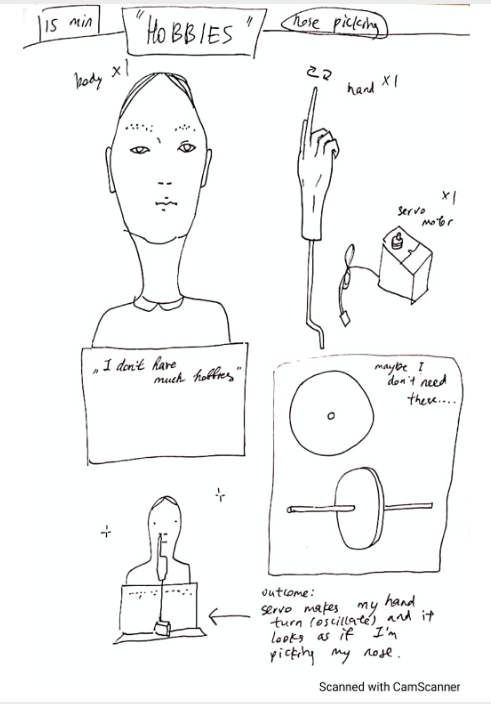 15 min
"HOBBIES"
nose picking
body x1
hand x1
x1
servo
motor
„I don't have
much hobbies"
maybe I
don't need
these....
outcome:
servo makes my hand
turn (oscillate) and it
looks as if I'm
picking my nose.
Scanned with CamScanner